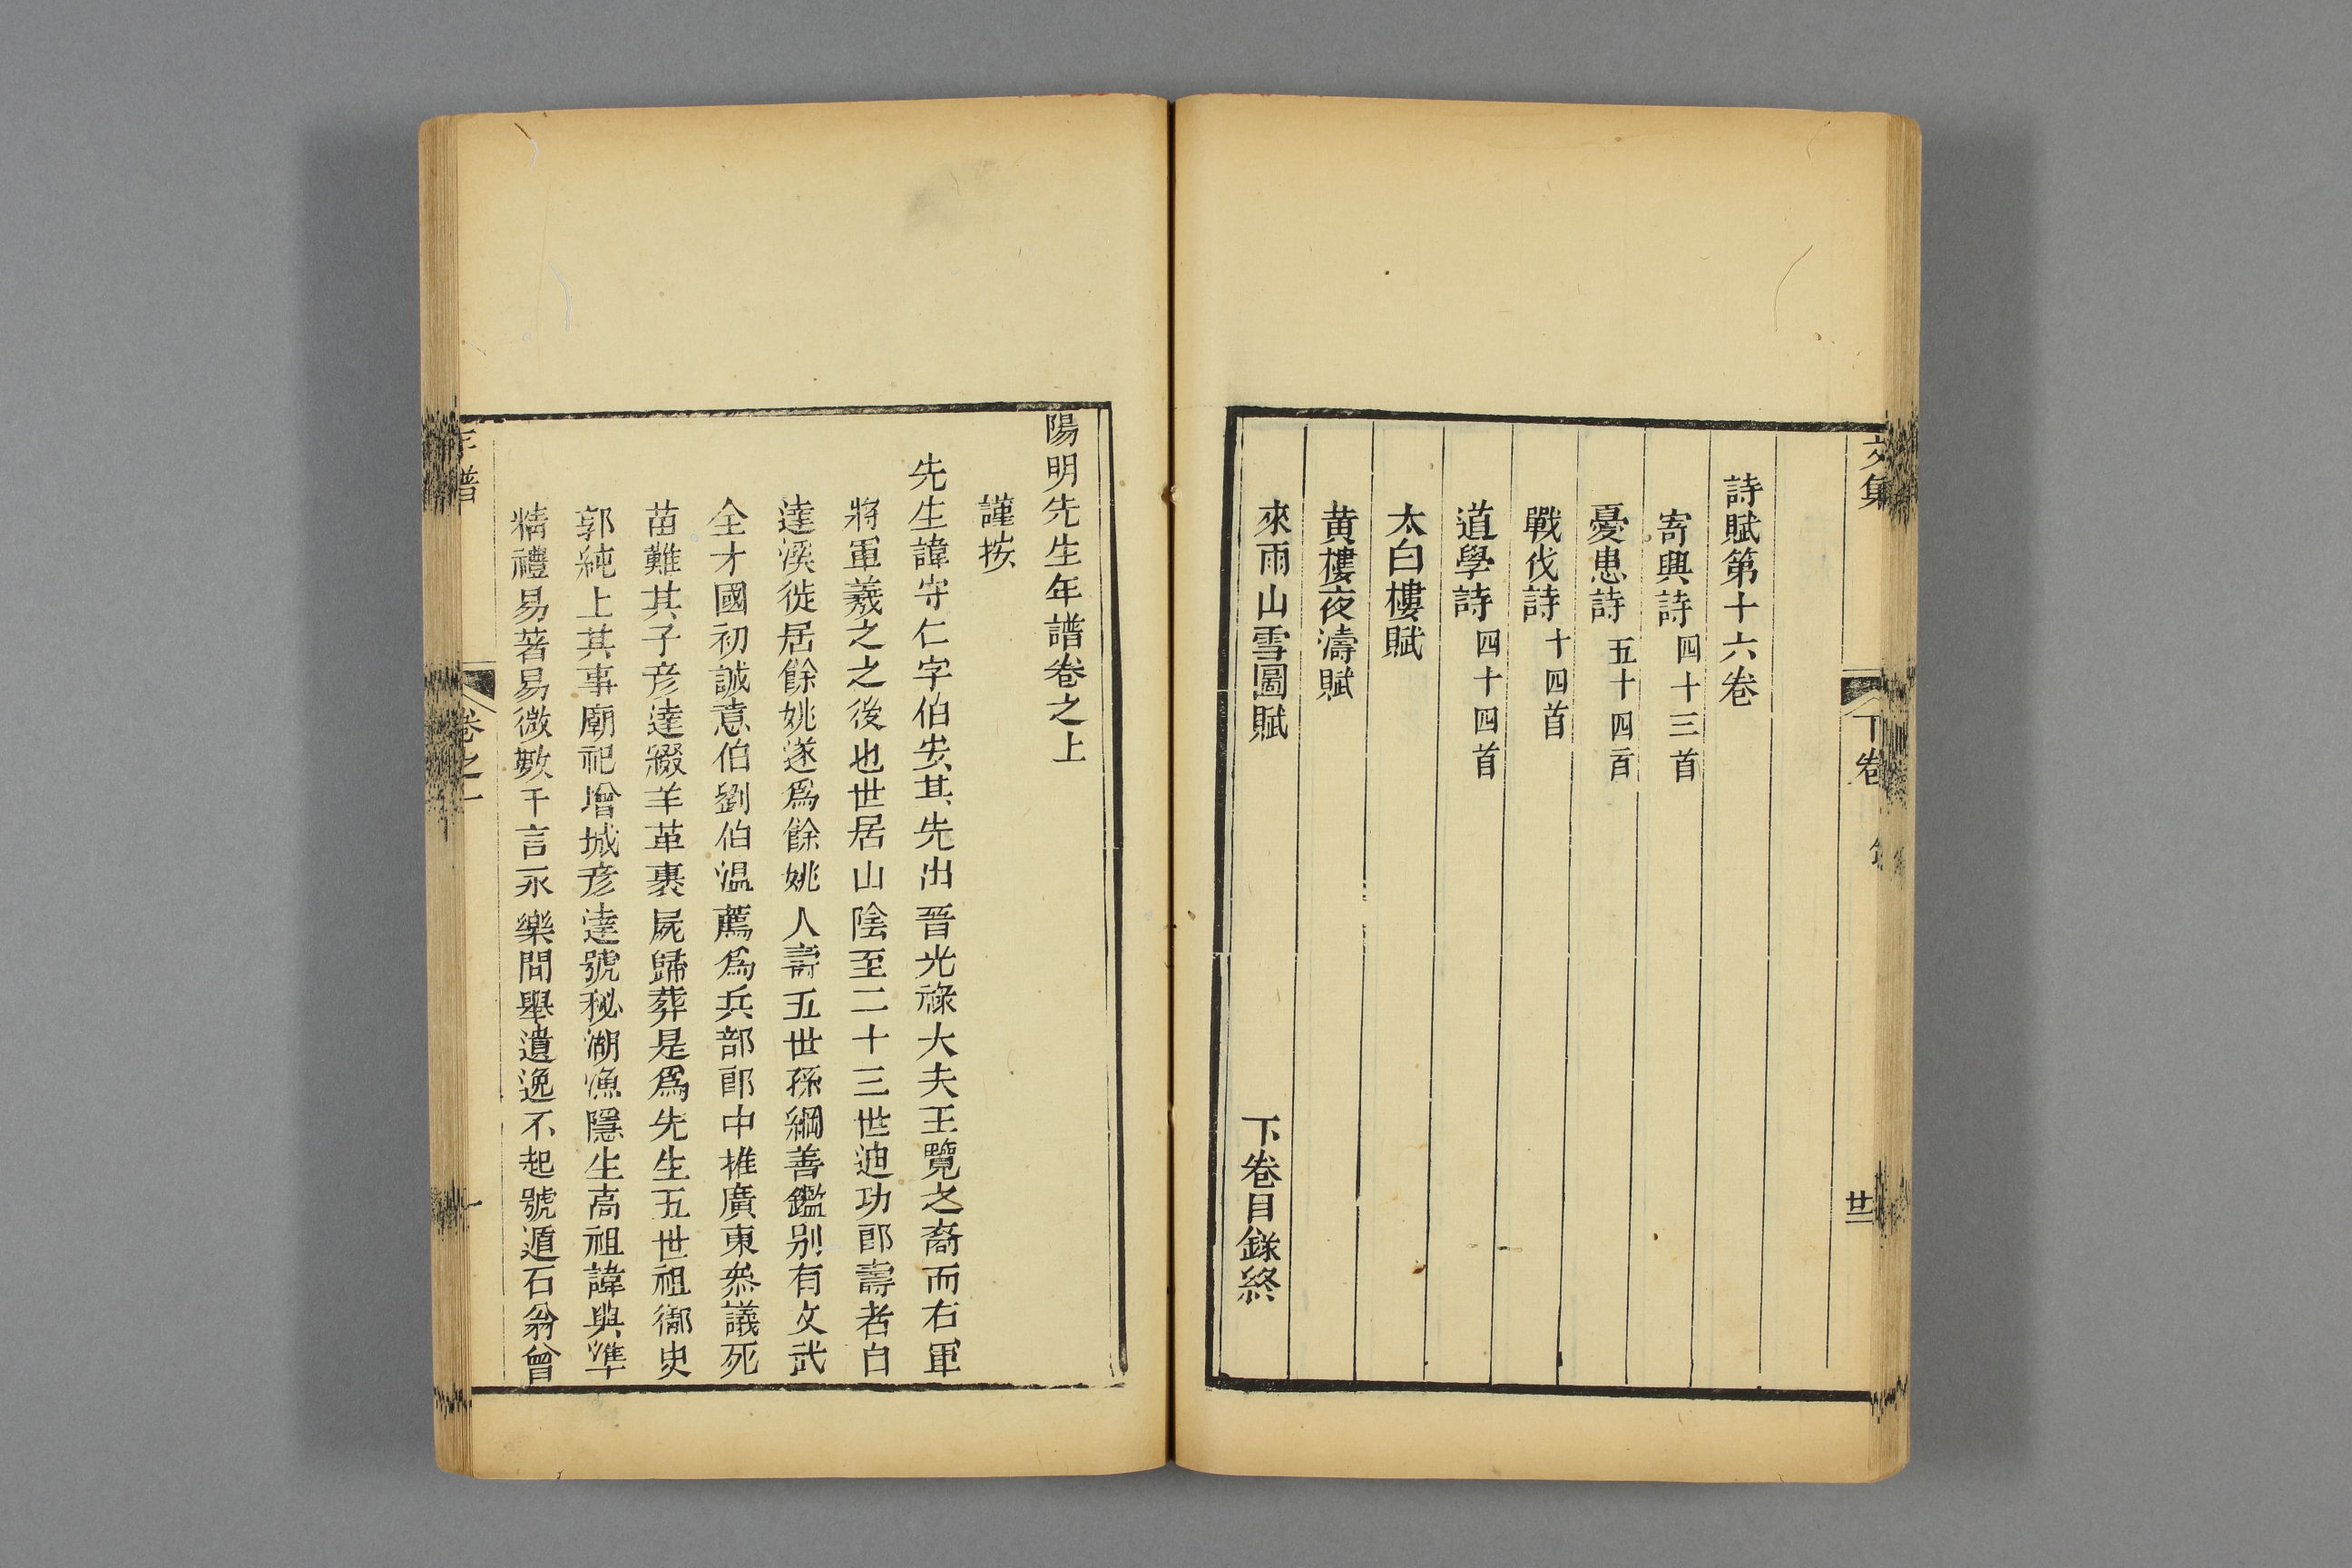 文集
下卷
廿二
詩賦第十六卷
寄興詩四十三首
憂患詩五十四首
戰伐詩十四首
道學詩四十四首
太白樓賦
黃樓夜濤賦
來雨山雪圖賦
下卷目錄終
陽明先生年譜卷之上
謹按
先生諱守仁字伯安其先出晉光祿大夫王覽之裔而右軍
將軍羲之之後也世居山陰至二十三世迪功郎壽者自
達溪徙居餘姚遂爲餘姚人壽五世孫綱善鑑别有文武
全才國初誠意伯劉伯溫薦爲兵部郎中推廣東叅議死
苗難其子彦達綴羊革裹屍歸葬是爲先生五世祖御史
郭純上其事廟祀增城彦達號秘湖漁隱生高祖諱與準
精禮易著易微數千言永樂間舉遺逸不起號遁石翁曾
年譜
卷之一
一